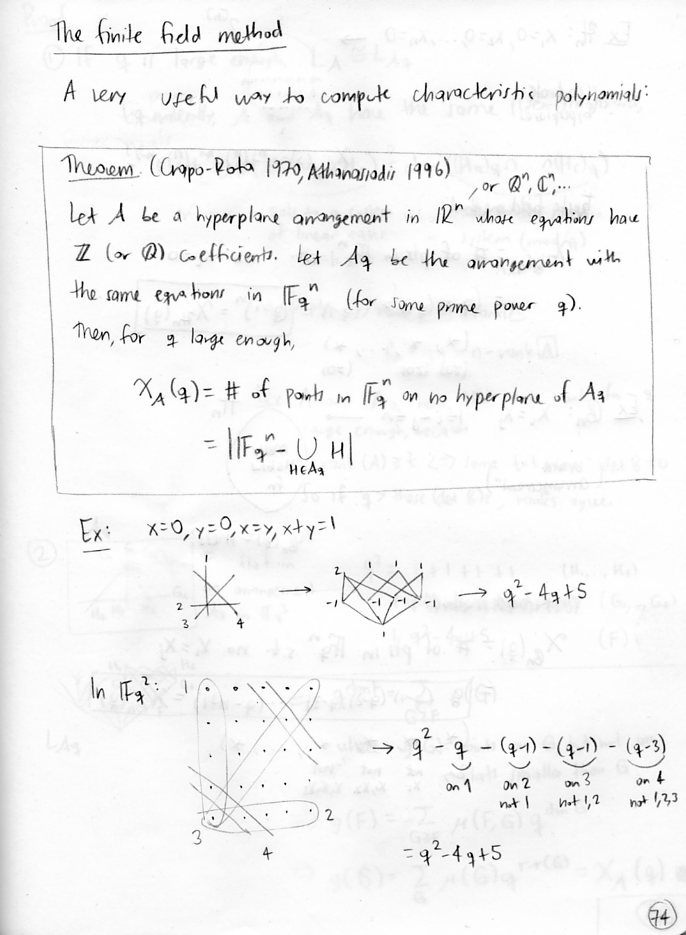 The finite field method
A very useful way to compute characteristic polynomials:
Theorem. (Crapo-Rota 1970, Athanasiadis 1996)
, or ℚⁿ, ℂⁿ, ...
Let A be a hyperplane arrangement in ℝⁿ whose equations have
ℤ (or ℚ) coefficients. Let A_q be the arrangement with
the same equations in 𝔽_qⁿ (for some prime power q).
Then, for q large enough,
χ_A(q) = # of points in 𝔽_qⁿ on no hyperplane of A_q
= |𝔽_qⁿ - ∪_{H∈A_q} H|
Ex: x=0, y=0, x=y, x+y=1
1 2 3 4 → 2 1 1 1 -1 -1 -1 -1 1 → q² - 4q + 5
In 𝔽_q²: 1 2 3 4
→ q² - q - (q-1) - (q-1) - (q-3)
on 1 on 2 on 3 on 4
not 1 not 1,2 not 1,2,3
= q² - 4q + 5
74